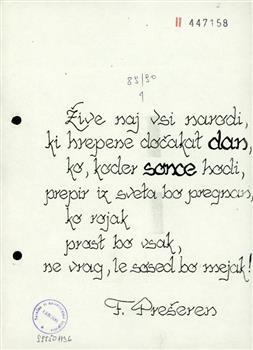 II 447158
89/90
1
Žive naj vsi narodi,
ki hrepene dočakat dan,
ko, koder sonce hodi,
prepir iz sveta bo pregnan,
ko rojak
prost bo vsak,
ne vrag, le sosed bo mejak!
F. Prešeren